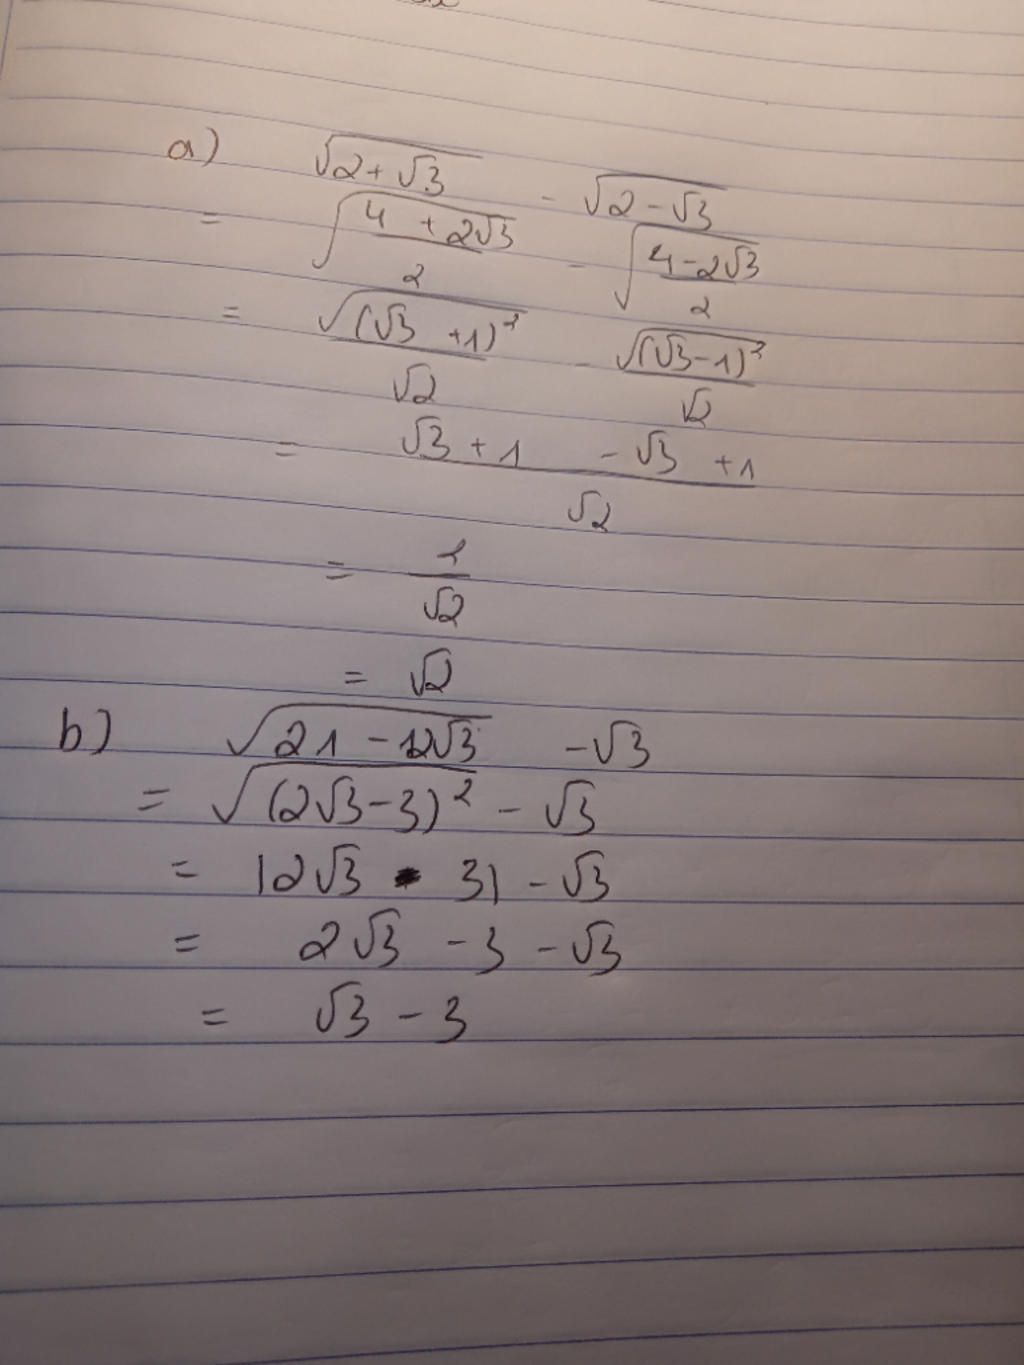 a) √(2+√3) - √(2-√3)
= √((4+2√3)/2) - √((4-2√3)/2)
= √((√3+1)²)/√2 - √((√3-1)²)/√2
= (√3+1 - √3+1)/√2
= 2/√2
= √2
b) √(21-12√3) - √3
= √((2√3-3)²) - √3
= |2√3 - 3| - √3
= 2√3 - 3 - √3
= √3 - 3